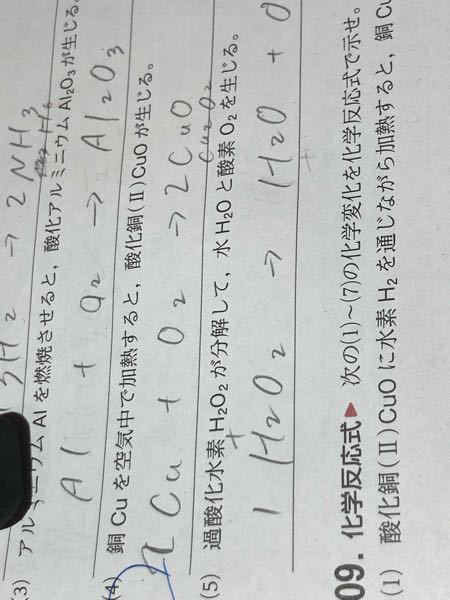 3H2 → 2NH3
(3) アルミニウム Al を燃焼させると，酸化アルミニウム Al2O3 が生じる。
Al + O2 → Al2O3
(4) 銅 Cu を空気中で加熱すると，酸化銅(II) CuO が生じる。
2Cu + O2 → 2CuO
(5) 過酸化水素 H2O2 が分解して，水 H2O と酸素 O2 を生じる。
1 H2O2 → H2O + O
09. 化学反応式▶ 次の(1)～(7)の化学変化を化学反応式で示せ。
(1) 酸化銅(II) CuO に水素 H2 を通じながら加熱すると，銅 C